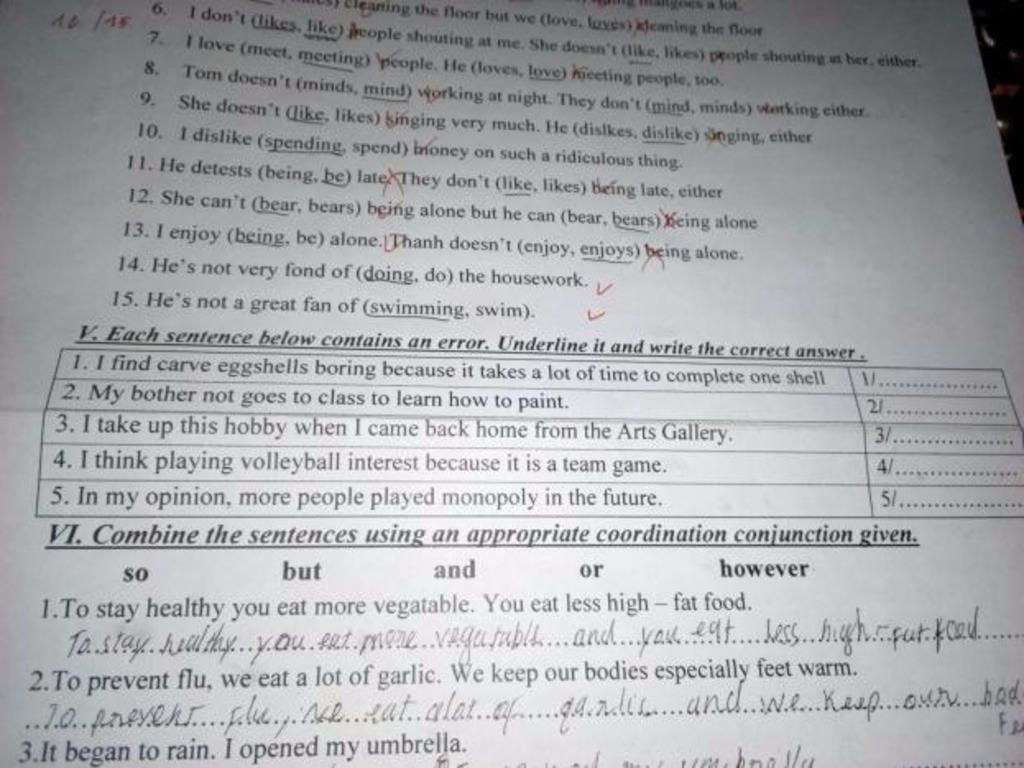 cleaning the floor but we (love, loves) cleaning the floor
10/15
6. I don't (likes, like) people shouting at me. She doesn't (like, likes) people shouting at her, either.
7. I love (meet, meeting) people. He (loves, love) meeting people, too.
8. Tom doesn't (minds, mind) working at night. They don't (mind, minds) working either.
9. She doesn't (like, likes) singing very much. He (dislkes, dislike) singing, either
10. I dislike (spending, spend) money on such a ridiculous thing.
11. He detests (being, be) late. They don't (like, likes) being late, either
12. She can't (bear, bears) being alone but he can (bear, bears) being alone
13. I enjoy (being, be) alone. Thanh doesn't (enjoy, enjoys) being alone.
14. He's not very fond of (doing, do) the housework.
15. He's not a great fan of (swimming, swim).
V. Each sentence below contains an error. Underline it and write the correct answer.
1. I find carve eggshells boring because it takes a lot of time to complete one shell 1/..................
2. My bother not goes to class to learn how to paint. 2/..................
3. I take up this hobby when I came back home from the Arts Gallery. 3/..................
4. I think playing volleyball interest because it is a team game. 4/..................
5. In my opinion, more people played monopoly in the future. 5/..................
VI. Combine the sentences using an appropriate coordination conjunction given.
so but and or however
1.To stay healthy you eat more vegatable. You eat less high – fat food.
To stay healthy you eat more vegatable and you eat less high-fat food
2.To prevent flu, we eat a lot of garlic. We keep our bodies especially feet warm.
To prevent flu, we eat alot of garlic and we keep our bod
3.It began to rain. I opened my umbrella.
my umbrella